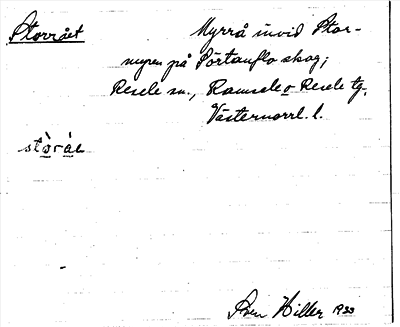 Storrået
Myrrå invid Stor-
myren på Sörtanflo skog;
Resele sn., Ramsele o Resele tg.
Västernorrl. l.
stòràe
Sven Hiller 1933